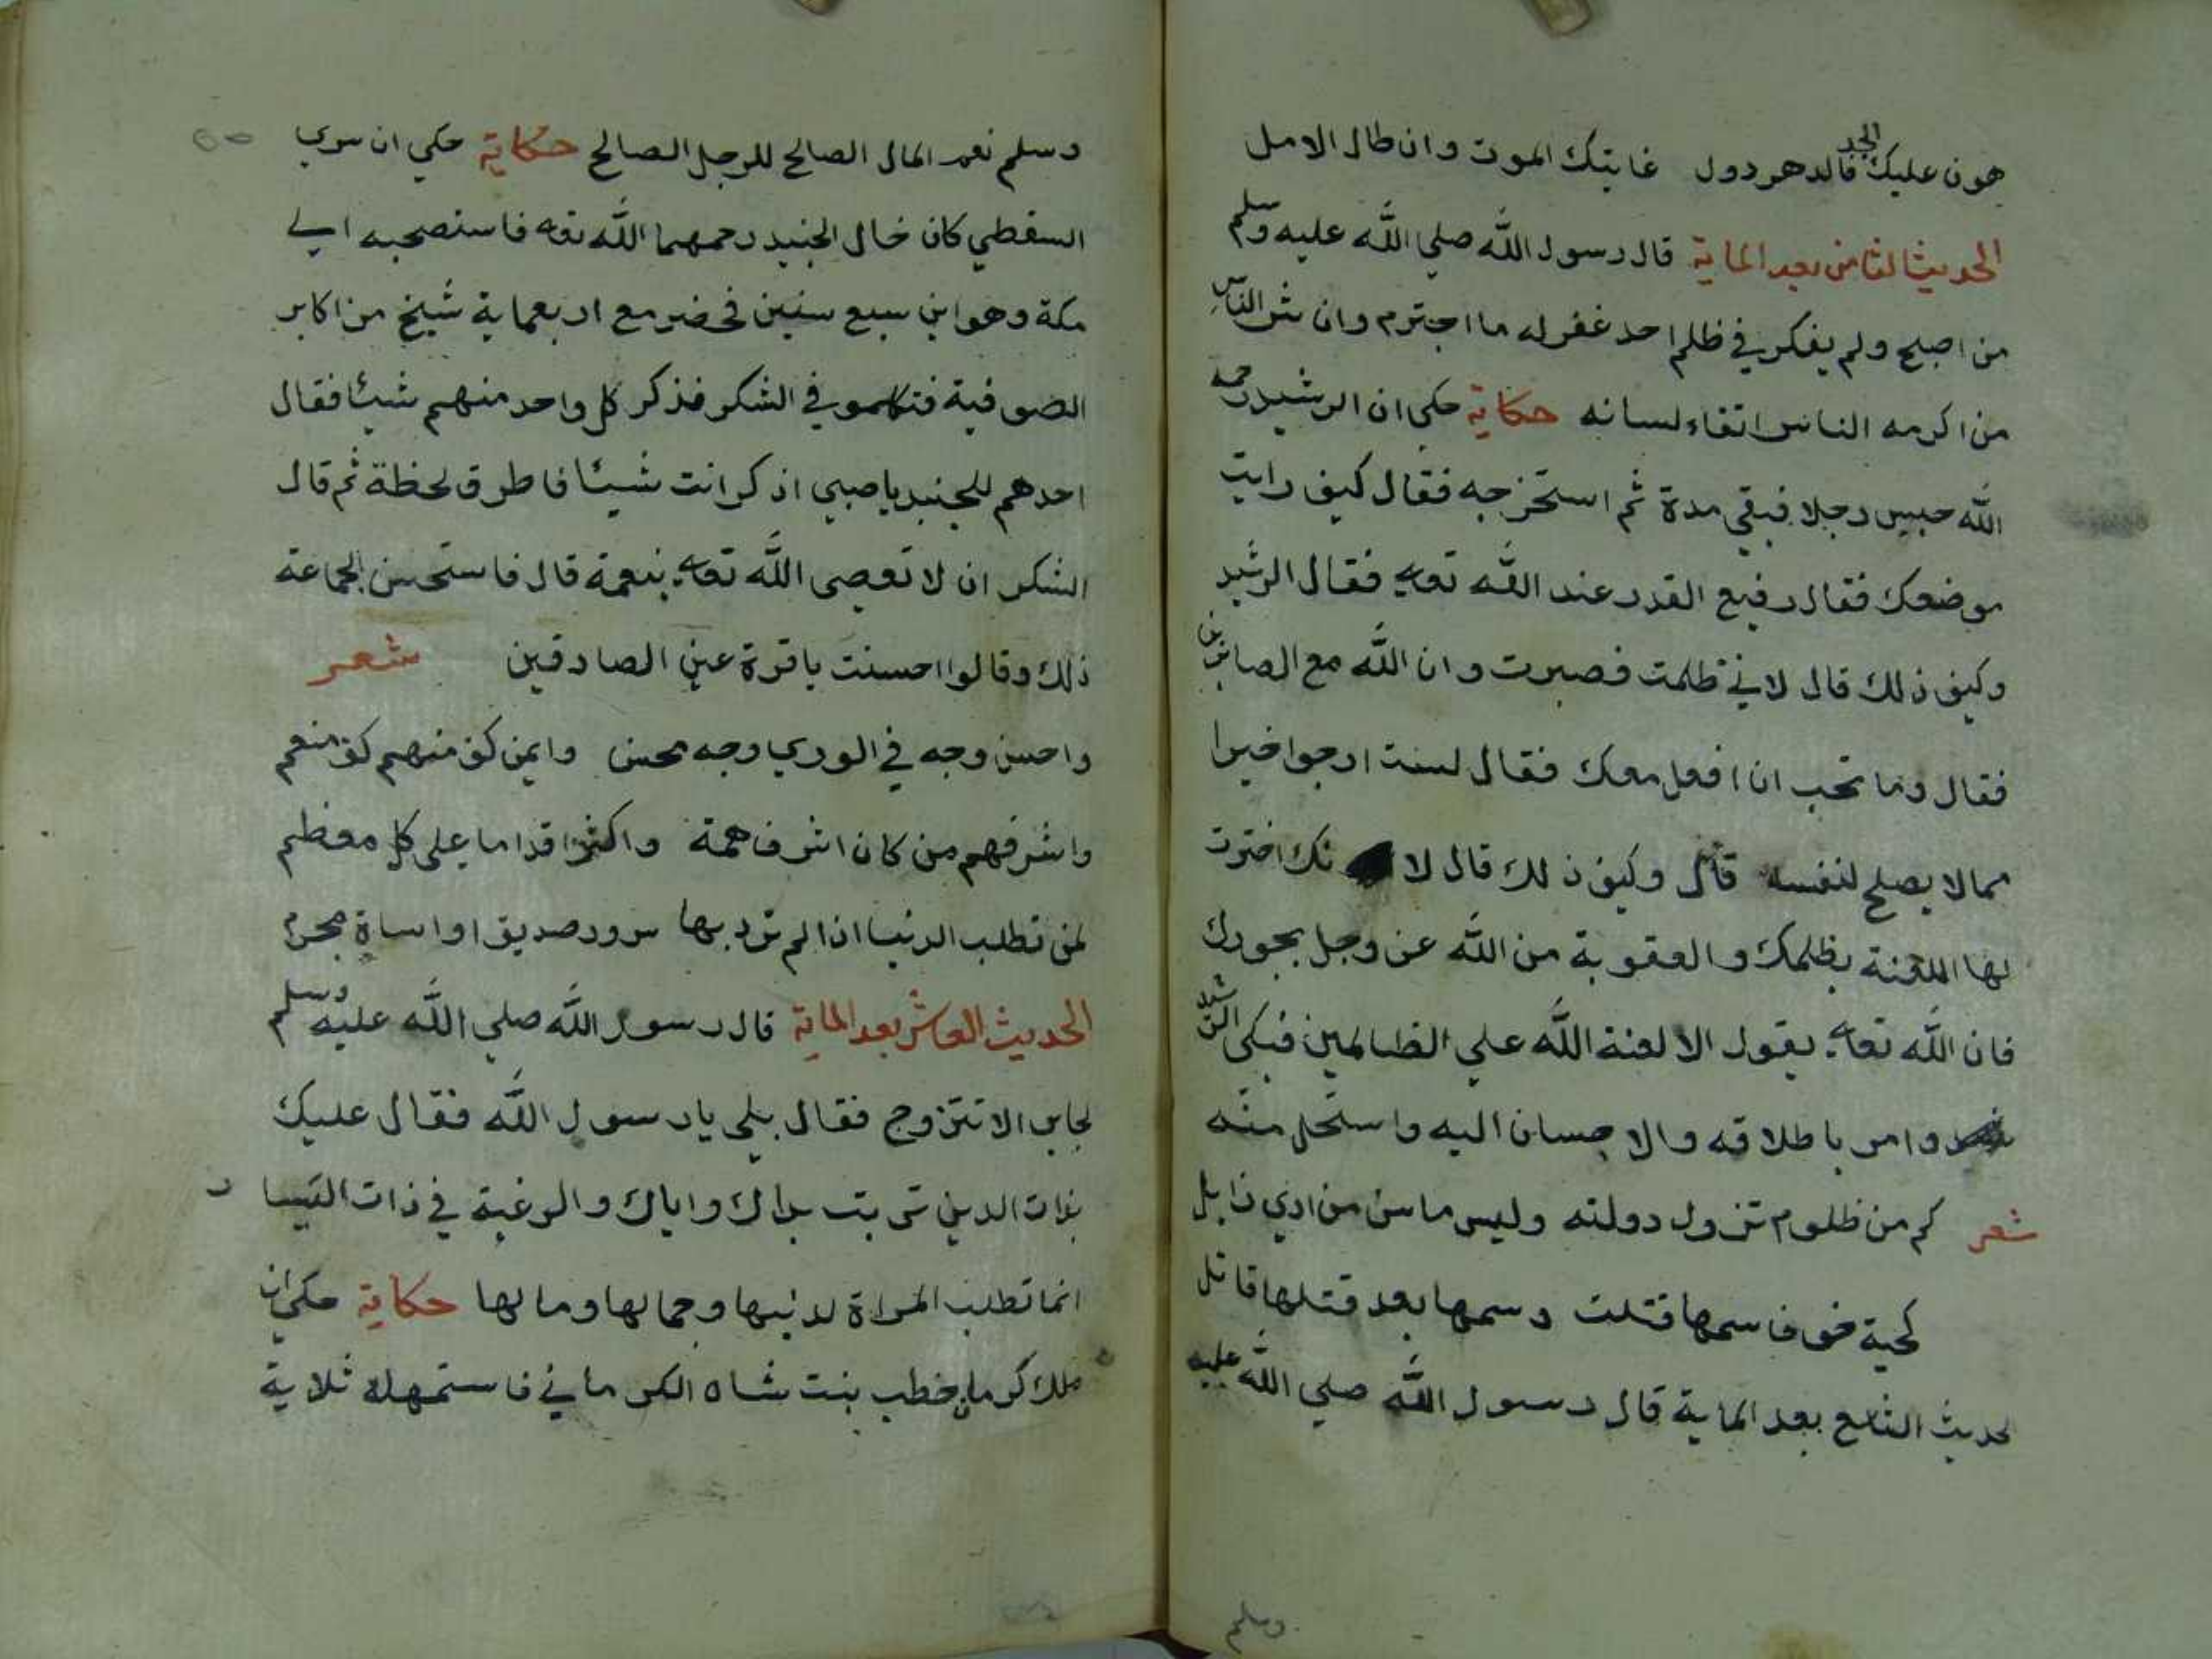 هون عليك الجد فالدهر دول غايتك الموت وان طال الامل
الحديث الثامن بعد الماية قال رسول الله صلي الله عليه وسلم
من اصبح ولم يفكر في ظلم احد غفر له ما اجترم وان شر الناس
من اكرمه الناس اتقاء لسانه حكاية حكي ان الرشيد رحمه
الله حبس رجلا فبقي مدة ثم استخرجه فقال كيف رايت
موضعك فقال رفيع القدر عند الله تعالي فقال الرشيد
وكيف ذلك قال لاني ظلمت فصبرت وان الله مع الصابرين
فقال وما تحب ان افعل معك فقال لست ارجوا خيرا
ممن لا يصلح لنفسه قال وكيف ذلك قال لا نك اخترت
لها اللعنة بظلمك والعقوبة من الله عز وجل بجورك
فان الله تعالي يقول الا لعنة الله علي الظالمين فبكي الرشيد
وامر باطلاقه والاحسان اليه واستحل منه
شعر كم من ظلوم تزول دولته وليس ما سن من اذي زايل
كحية خوف سمها قتلت وسمها بعد قتلها قاتل
لحديث التاسع بعد الماية قال رسول الله صلي الله عليه
وسلم
وسلم نعم المال الصالح للرجل الصالح حكاية حكي ان سري
السقطي كان خال الجنيد رحمهما الله تعالي فاستصحبه الي
مكة وهو ابن سبع سنين فحضر مع اربعماية شيخ من اكابر
الصوفية فتكلموا في الشكر فذكر كل واحد منهم شيئا فقال
احدهم للجنيد يا صبي اذكر انت شيئا فاطرق لحظة ثم قال
الشكر ان لا تعصي الله تعالي بنعمة قال فاستحسن الجماعة
ذلك وقالوا احسنت يا قرة عين الصادقين شعر
واحسن وجه في الوري وجه محسن وايمن كف منهم كف منعم
واشرفهم من كان اشرف همة واكثر اقداما علي كل معظم
لمن تطلب الدنيا اذا لم ترد بها سرور صديق او اساة مجرم
الحديث العاشر بعد الماية قال رسول الله صلي الله عليه وسلم
لجابر الا تتزوج فقال بلي يا رسول الله فقال عليك
بذات الدين تربت يداك واياك والرغبة في ذات اليسار
انما تطلب المراة لدينها وجمالها ومالها حكاية حكي ان
ملك كرمان خطب بنت شاه الكرماني فاستمهله ثلاثة